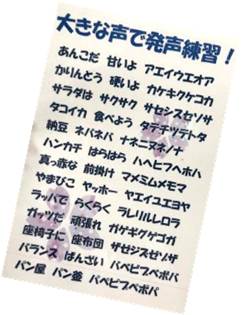 大きな声で発声練習！
あんこだ 甘いよ アエイウエオア
かりんとう 硬いよ カケキクケコカ
サラダは サクサク サセシスセソサ
タコイカ 食べよう タテチツテトタ
納豆 ネバネバ ナネニヌネノナ
ハンカチ はらはら ハヘヒフヘホハ
真っ赤な 前掛け マメミムメモマ
やまびこ ヤッホー ヤエイユエヨヤ
ラッパで らくらく ラレリルレロラ
ガッツだ 頑張れ ガゲギグゲゴガ
座椅子に 座布団 ザゼジズゼゾザ
バランス ばんざい バベビブベボバ
パン屋 パン釜 パペピプペポパ